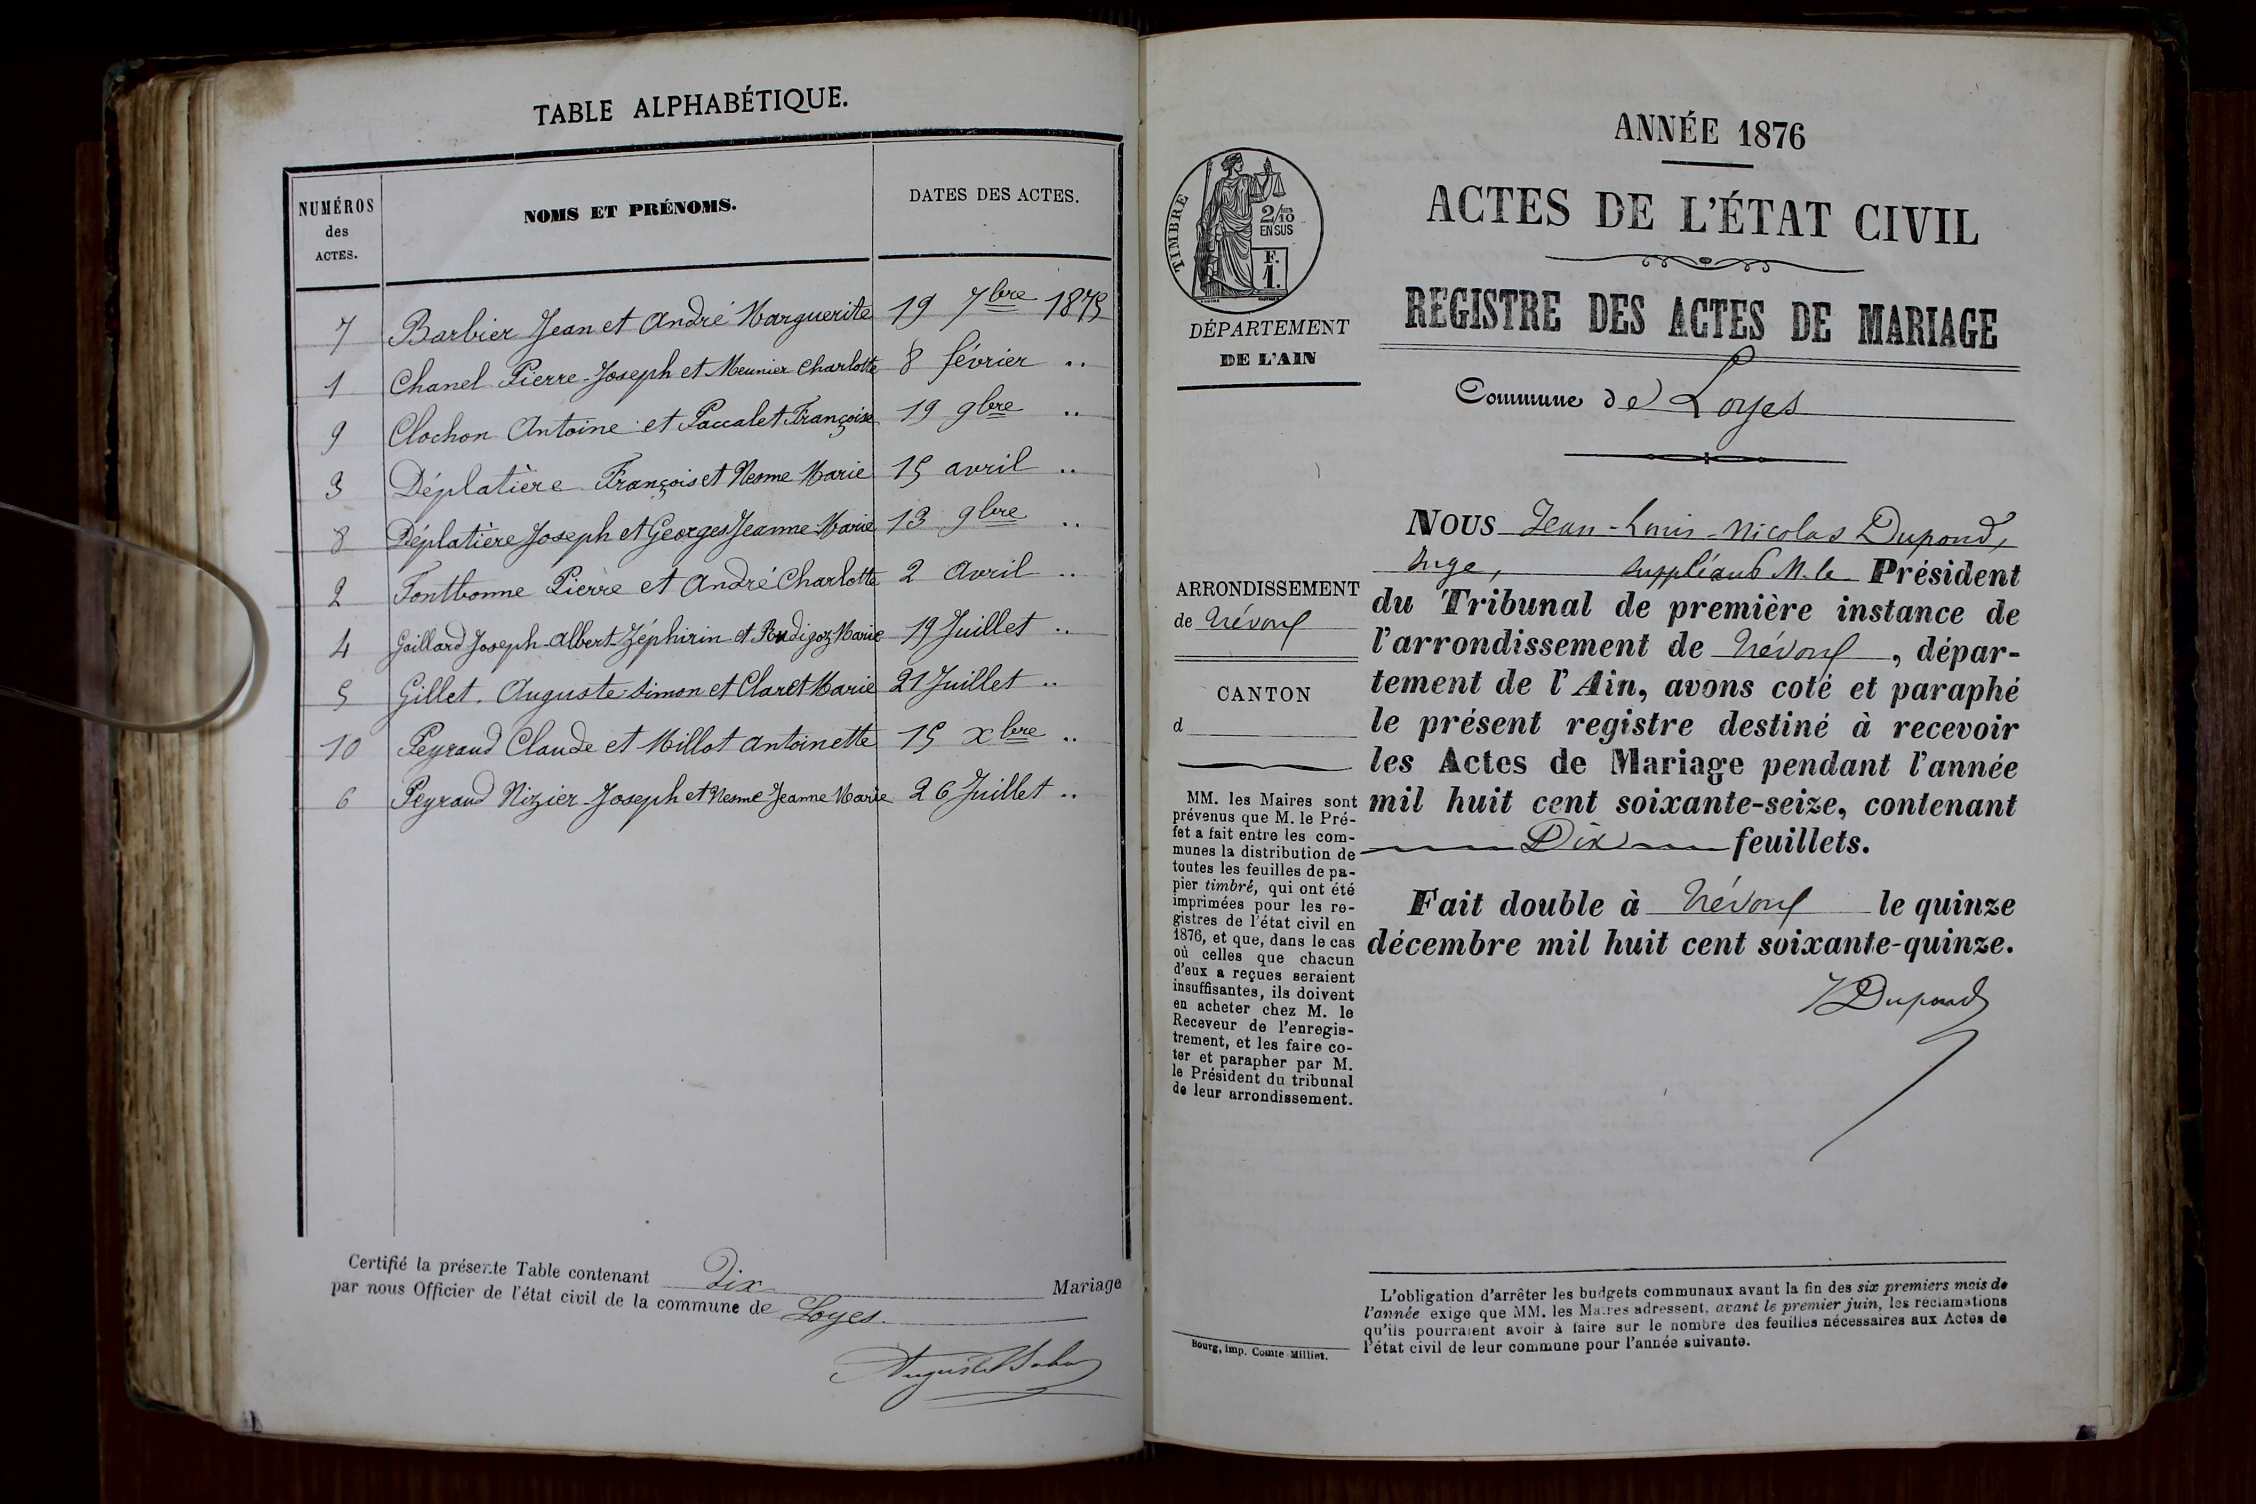 TABLE ALPHABÉTIQUE.
NUMÉROS
des
ACTES.
NOMS ET PRÉNOMS.
DATES DES ACTES.
7 Barbier Jean et André Marguerite 19 7bre 1875
1 Chanel Pierre-Joseph et Meunier Charlotte 8 février ..
9 Clochon Antoine et Paccalet Françoise 19 9bre ..
3 Déplatière François et Nesme Marie 15 avril ..
8 Déplatière Joseph et Georges Jeanne-Marie 13 9bre ..
2 Fontbonne Pierre et André Charlotte 2 Avril ..
4 Gaillard Joseph-Albert-Zéphirin et Rudigoz Marie 19 Juillet ..
5 Gillet. Auguste-Simon et Claret Marie 21 Juillet ..
10 Peyraud Claude et Millot Antoinette 15 Xbre ..
6 Peyraud Nizier-Joseph et Nesme Jeanne Marie 26 Juillet ..
Certifié la présente Table contenant Dix Mariage
par nous Officier de l'état civil de la commune de Loyes.
ANNÉE 1876
ACTES DE L'ÉTAT CIVIL
REGISTRE DES ACTES DE MARIAGE
Commune de Loyes
TIMBRE
2/10
EN SUS
F.
1.
DÉPARTEMENT
DE L'AIN
ARRONDISSEMENT
de Trévoux
CANTON
d
MM. les Maires sont
prévenus que M. le Pré-
fet a fait entre les com-
munes la distribution de
toutes les feuilles de pa-
pier timbré, qui ont été
imprimées pour les re-
gistres de l'état civil en
1876, et que, dans le cas
où celles que chacun
d'eux a reçues seraient
insuffisantes, ils doivent
en acheter chez M. le
Receveur de l'enregis-
trement, et les faire co-
ter et parapher par M.
le Président du tribunal
de leur arrondissement.
Bourg, imp. Comte-Milliet.
NOUS Jean-Louis-Nicolas Dupond,
Juge, suppléant M. le Président
du Tribunal de première instance de
l'arrondissement de Trévoux, dépar-
tement de l'Ain, avons coté et paraphé
le présent registre destiné à recevoir
les Actes de Mariage pendant l'année
mil huit cent soixante-seize, contenant
Dix feuillets.
Fait double à Trévoux le quinze
décembre mil huit cent soixante-quinze.
Dupond
L'obligation d'arrêter les budgets communaux avant la fin des six premiers mois de
l'année exige que MM. les Maires adressent, avant le premier juin, les réclamations
qu'ils pourraient avoir à faire sur le nombre des feuilles nécessaires aux Actes de
l'état civil de leur commune pour l'année suivante.